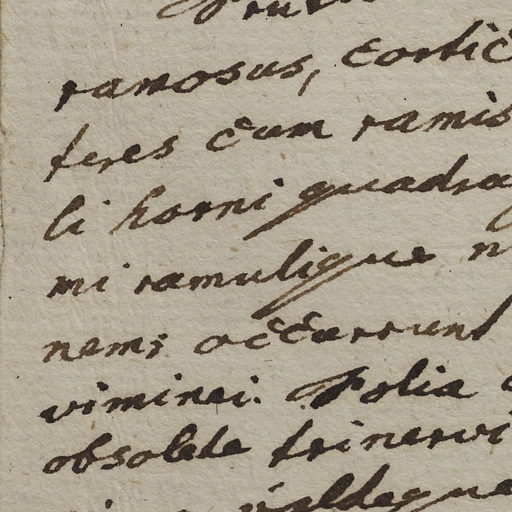 ramosus, cortic
teres cum ramis
li horni quadra
mi ramulique n
nem; occurrunt
viminei. Folia
obsolete trinervi
valdeque